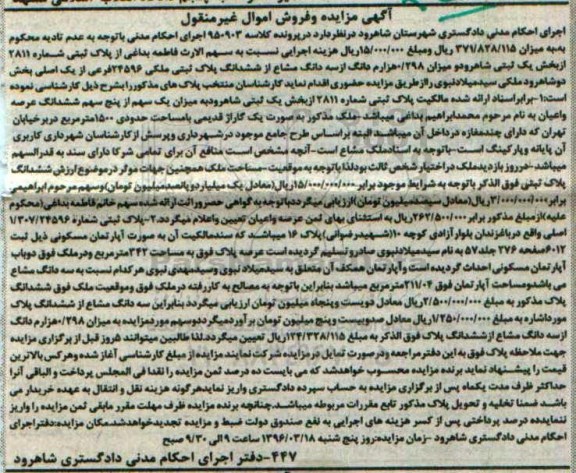 آگهی مزایده وفروش اموال غیرمنقول
اجرای احکام مدنی دادگستری شهرستان شاهرود درنظردارد درپرونده کلاسه ۹۵۰۹۰۳ اجرای احکام مدنی باتوجه به عدم تادیه محکوم
به‌به میزان ۳۷۱/۸۲۸/۱۱۵ ریال ومبلغ ۱۵/۰۰۰/۰۰۰ریال هزینه اجرایی نسبت به سهم الارث فاطمه بداغی از پلاک ثبتی شماره ۲۸۱۱
ازبخش یک ثبتی شاهرودو میزان ۰/۲۹۸هزارم دانگ ازسه دانگ مشاع از ششدانگ پلاک ثبتی ملکی ۲۴۵۹۶فرعی از یک اصلی بخش
دوشاهرود ملکی سیدمیلادنبوی راازطریق مزایده حضوری اقدام نماید کارشناسان منتخب پلاک های مذکوررابشرح ذیل کارشناسی نموده
است:۱-برابراسناد ارائه شده مالکیت پلاک ثبتی شماره ۲۸۱۱ ازبخش یک ثبتی شاهرودبه میزان یک سهم از پنج سهم ششدانگ عرصه
واعیان به نام مرحوم محمدابراهیم بداغی میباشد-ملک مذکور به صورت یک گاراژ قدیمی بامساحت حدودی ۱۵۰۰مترمربع دربرخیابان
تهران که دارای چندمغازه درداخل آن میباشد.البته براساس طرح جامع موجود درشهرداری وپرسش ازکارشناسان شهرداری کاربری
آن پایانه وپارکینگ است-باتوجه به اسنادملک مشاع است-آنچه مشخص است منافع آن برای تمامی شرکا دارای سند به قدرالسهم
میباشد-درروز بازدیدملک دراختیارشخص ثالث بودلذا باتوجه به موقعیت-مساحت ملک همچنین جهات موثر درموضوع ارزش ششدانگ
پلاک ثبتی فوق الذکر باتوجه به شرایط موجود برابر ۱۵/۰۰۰/۰۰۰/۰۰۰ریال(معادل یک میلیاردوپانصدمیلیون تومان)وسهم مرحوم ابراهیمی
برابر۳/۰۰۰/۰۰۰/۰۰۰ریال(معادل سیصدمیلیون تومان)ارزیابی میگرددباتوجه به گواهی حصروراثت ارائه شده سهم خانم فاطمه بداغی(محکوم
علیه)ازمبلغ مذکور برابر۲۶۲/۵۰۰/۰۰۰ریال به استثنای بهای ثمن عرصه واعیان تعیین واعلام میگردد.۲-پلاک ثبتی شماره ۱/۳۰۷/۲۴۵۹۶
اصلی واقع درباغزندان بلوار آزادی کوچه ۱۰(شهیدرضوانی)پلاک ۱۶ میباشد که سندمالکیت آن به صورت آپارتمان مسکونی ذیل ثبت
۶۰۱۲صفحه ۲۷۶ جلد۵۷ به نام سیدمیلادنبوی صادروتسلیم گردیده است عرصه پلاک فوق به مساحت ۳۴۲مترمربع ودرملک فوق دوباب
آپارتمان مسکونی احداث گردیده است وآپارتمان همکف آن متعلق به سیدمیلاد نبوی وسیدمهدی نبوی هرکدام نسبت به سه دانگ مشاع
می باشدومساحت آپارتمان فوق ۲۱۱/۰۴مترمربع میباشد بنابراین باتوجه به مصالح به کاررفته درملک فوق وموقعیت ملک فوق ششدانگ
پلاک مذکور به مبلغ ۲/۵۰۰/۰۰۰/۰۰۰ریال معادل دویست وپنجاه میلیون تومان ارزیابی میگردد بنابراین سه دانگ مشاع از ششدانگ پلاک
مورداشاره به مبلغ ۱/۲۵۰/۰۰۰/۰۰۰ریال معادل صدوبیست وپنج میلیون تومان برآوردمیگرددوسهم موردمزایده به میزان ۰/۲۹۸هزارم دانگ
ازسه دانگ مشاع ازششدانگ پلاک فوق الذکر به مبلغ ۱۲۴/۳۲۸/۱۱۵ریال تعیین میگردد.لذا طالبین میتوانند ۵روز قبل از برگزاری مزایده
جهت ملاحظه پلاک فوق به این دفترمراجعه ودرصورت تمایل درمزایده شرکت نمایند مزایده از مبلغ کارشناسی آغاز شده وهرکس بالاترین
قیمت را پیشنهاد نماید برنده مزایده محسوب خواهدشد که می بایست ده درصد ثمن مزایده را نقدا فی المجلس پرداخت و الباقی آنرا
حداکثر ظرف مدت یکماه پس از برگزاری مزایده به حساب سپرده دادگستری واریز نمایدهرگونه هزینه نقل و انتقال به عهده خریدار می
باشد ضمنا تخلیه و تحویل پلاک مذکور تابع مقررات مربوطه میباشد.چنانچه برنده مزایده ظرف مهلت مقرر مابقی ثمن مزایده را واریز
ننمایدده درصد پرداختی پس از کسر هزینه های اجرایی به نفع صندوق دولت ضبط و مزایده تجدیدخواهدشدمکان مزایده:دفتراجرای
احکام مدنی دادگستری شاهرود -زمان مزایده:روز پنج شنبه ۱۳۹۶/۰۳/۱۸ ساعت ۹ الی ۹/۳۰ صبح
۴۴۷-دفتر اجرای احکام مدنی دادگستری شاهرود